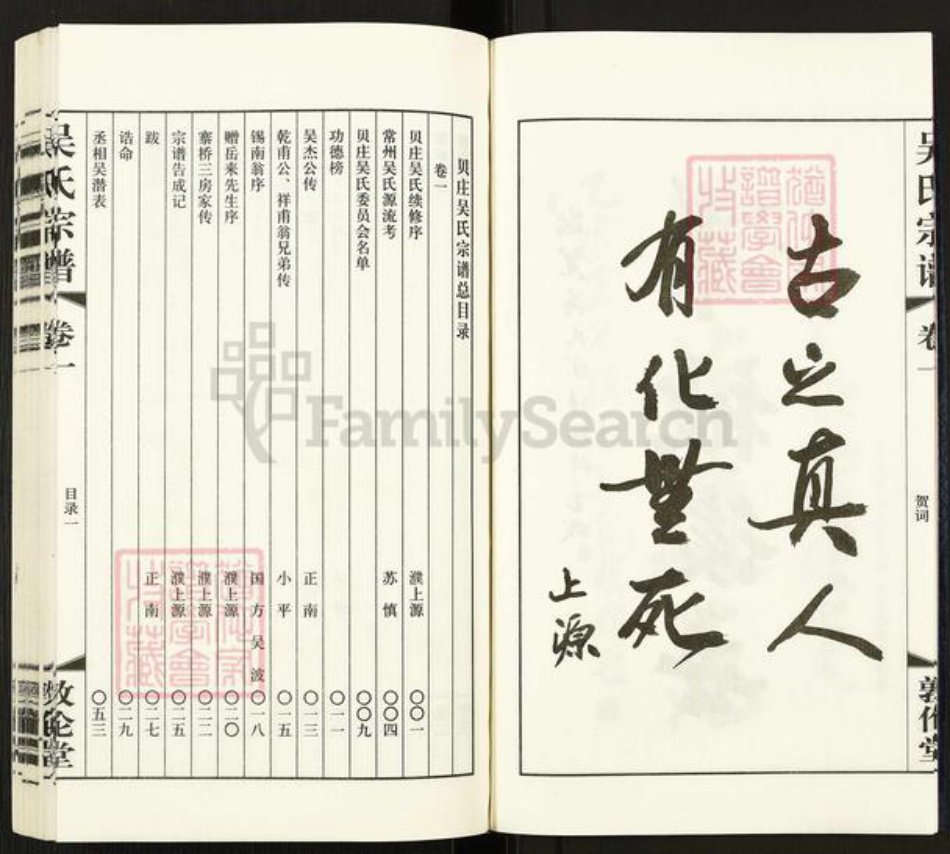 吴氏宗谱
卷一
贺词
敦伦堂
古之真人
有化無死
上源
贝庄吴氏宗谱总目录
卷一
贝庄吴氏续修序 濮上源 〇〇一
常州吴氏源流考 苏慎 〇〇四
贝庄吴氏委员会名单 〇〇九
功德榜 〇一一
吴杰公传 正南 〇一三
乾甫公、祥甫翁兄弟传 小平 〇一五
锡南翁序 国方 吴波 〇一八
赠岳来先生序 濮上源 〇二〇
寨桥三房家传 濮上源 〇二二
宗谱告成记 濮上源 〇二五
跋 正南 〇二七
诰命 〇二九
丞相吴潜表 〇五三
吴氏宗谱
卷一
目录一
敦伦堂
FamilySearch